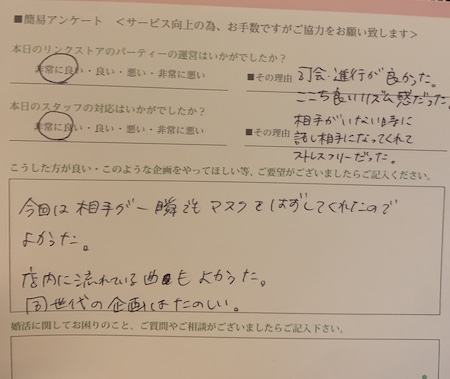 ■簡易アンケート　＜サービス向上の為、お手数ですがご協力をお願い致します＞
本日のリンクストアのパーティーの運営はいかがでしたか？
非常に良い・良い・悪い・非常に悪い
■その理由 司会・進行が良かった。
ここち良いリズム感だった。
本日のスタッフの対応はいかがでしたか？
非常に良い・良い・悪い・非常に悪い
■その理由 相手がいない時に
話し相手になってくれて
ストレスフリーだった。
こうした方が良い・このような企画をやってほしい等、ご要望がございましたらご記入ください。
今回は相手が一瞬でもマスクをはずしてくれたので
よかった。
店内に流れている曲もよかった。
同世代の企画はたのしい。
婚活に関してお困りのこと、ご質問やご相談がございましたらご記入下さい。